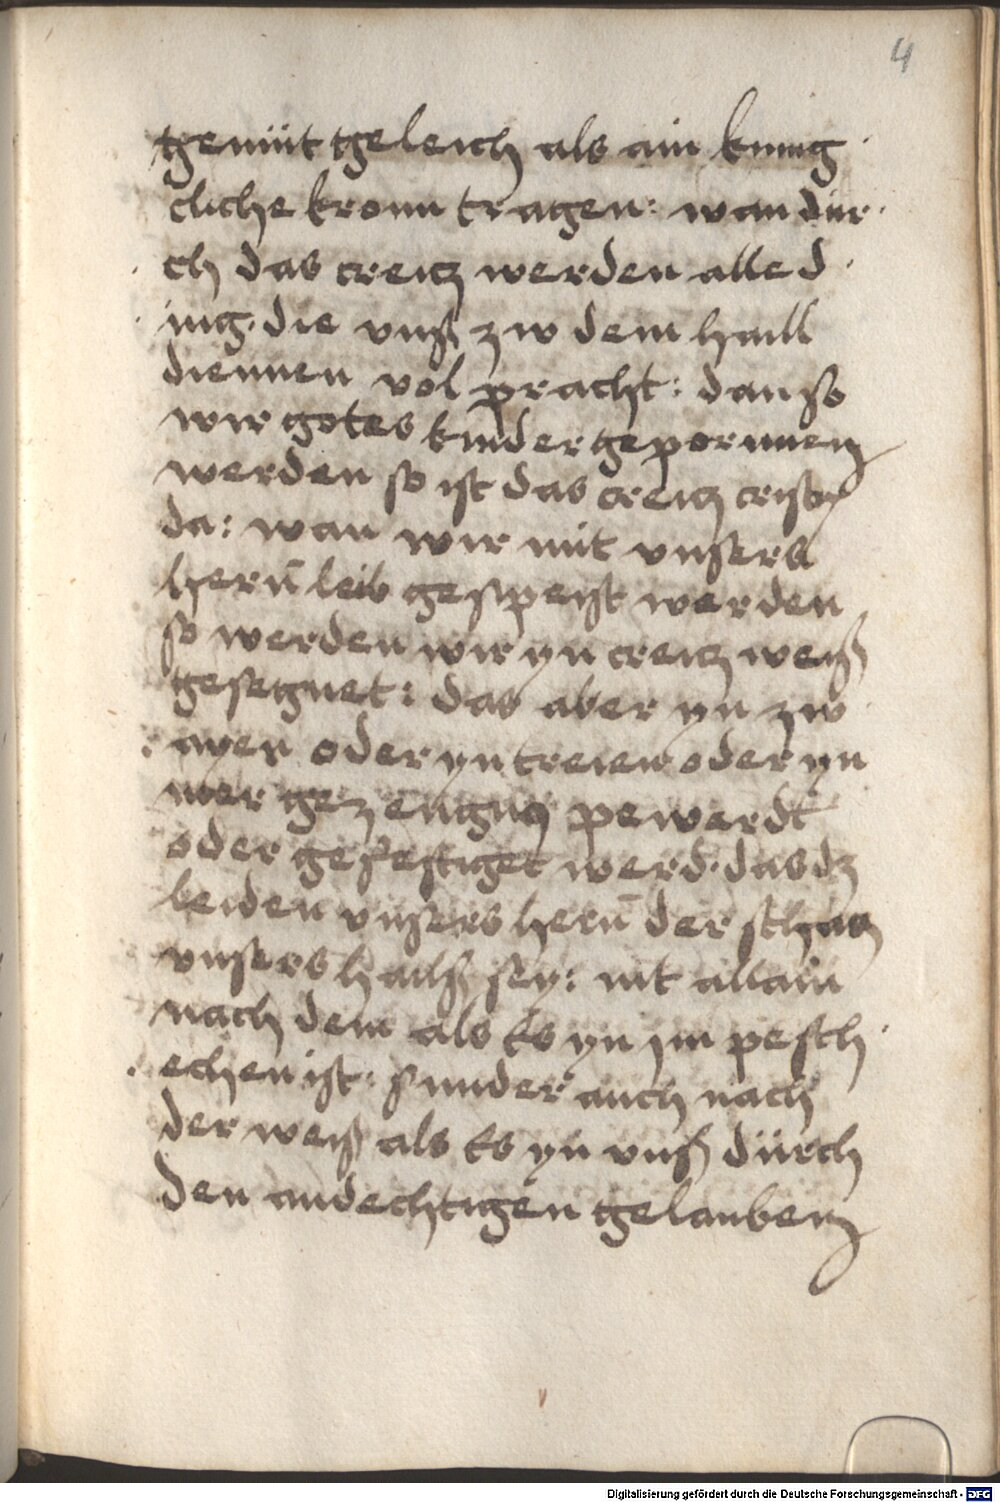 4
gemüt geleich als ain kunig
cliche kronn tragen: wan dur
ch das creicz werden alle d
ing die vnß zw dem haill
diennen vol pracht: dan so
wir gotes kinder gepornnen
werden so ist das creicz cristy
da: wan wir mit vnsers
hern̄ leib gespeist werden
so werden wir yn creicz weiß
gesegnet: das aber yn zw
ayen oder yn treien oder yn
mer gezeugnus pewerdt
oder gefestiget werd. das dz
leiden vnsers hern̄ der schacz
vnsers hailß sey: nit allain
nach dem als es yn im pesch
echen ist: sunder auch nach
der weiß als es yn vnß dürch
den andechtigen gelauben
Digitalisierung gefördert durch die Deutsche Forschungsgemeinschaft - DFG